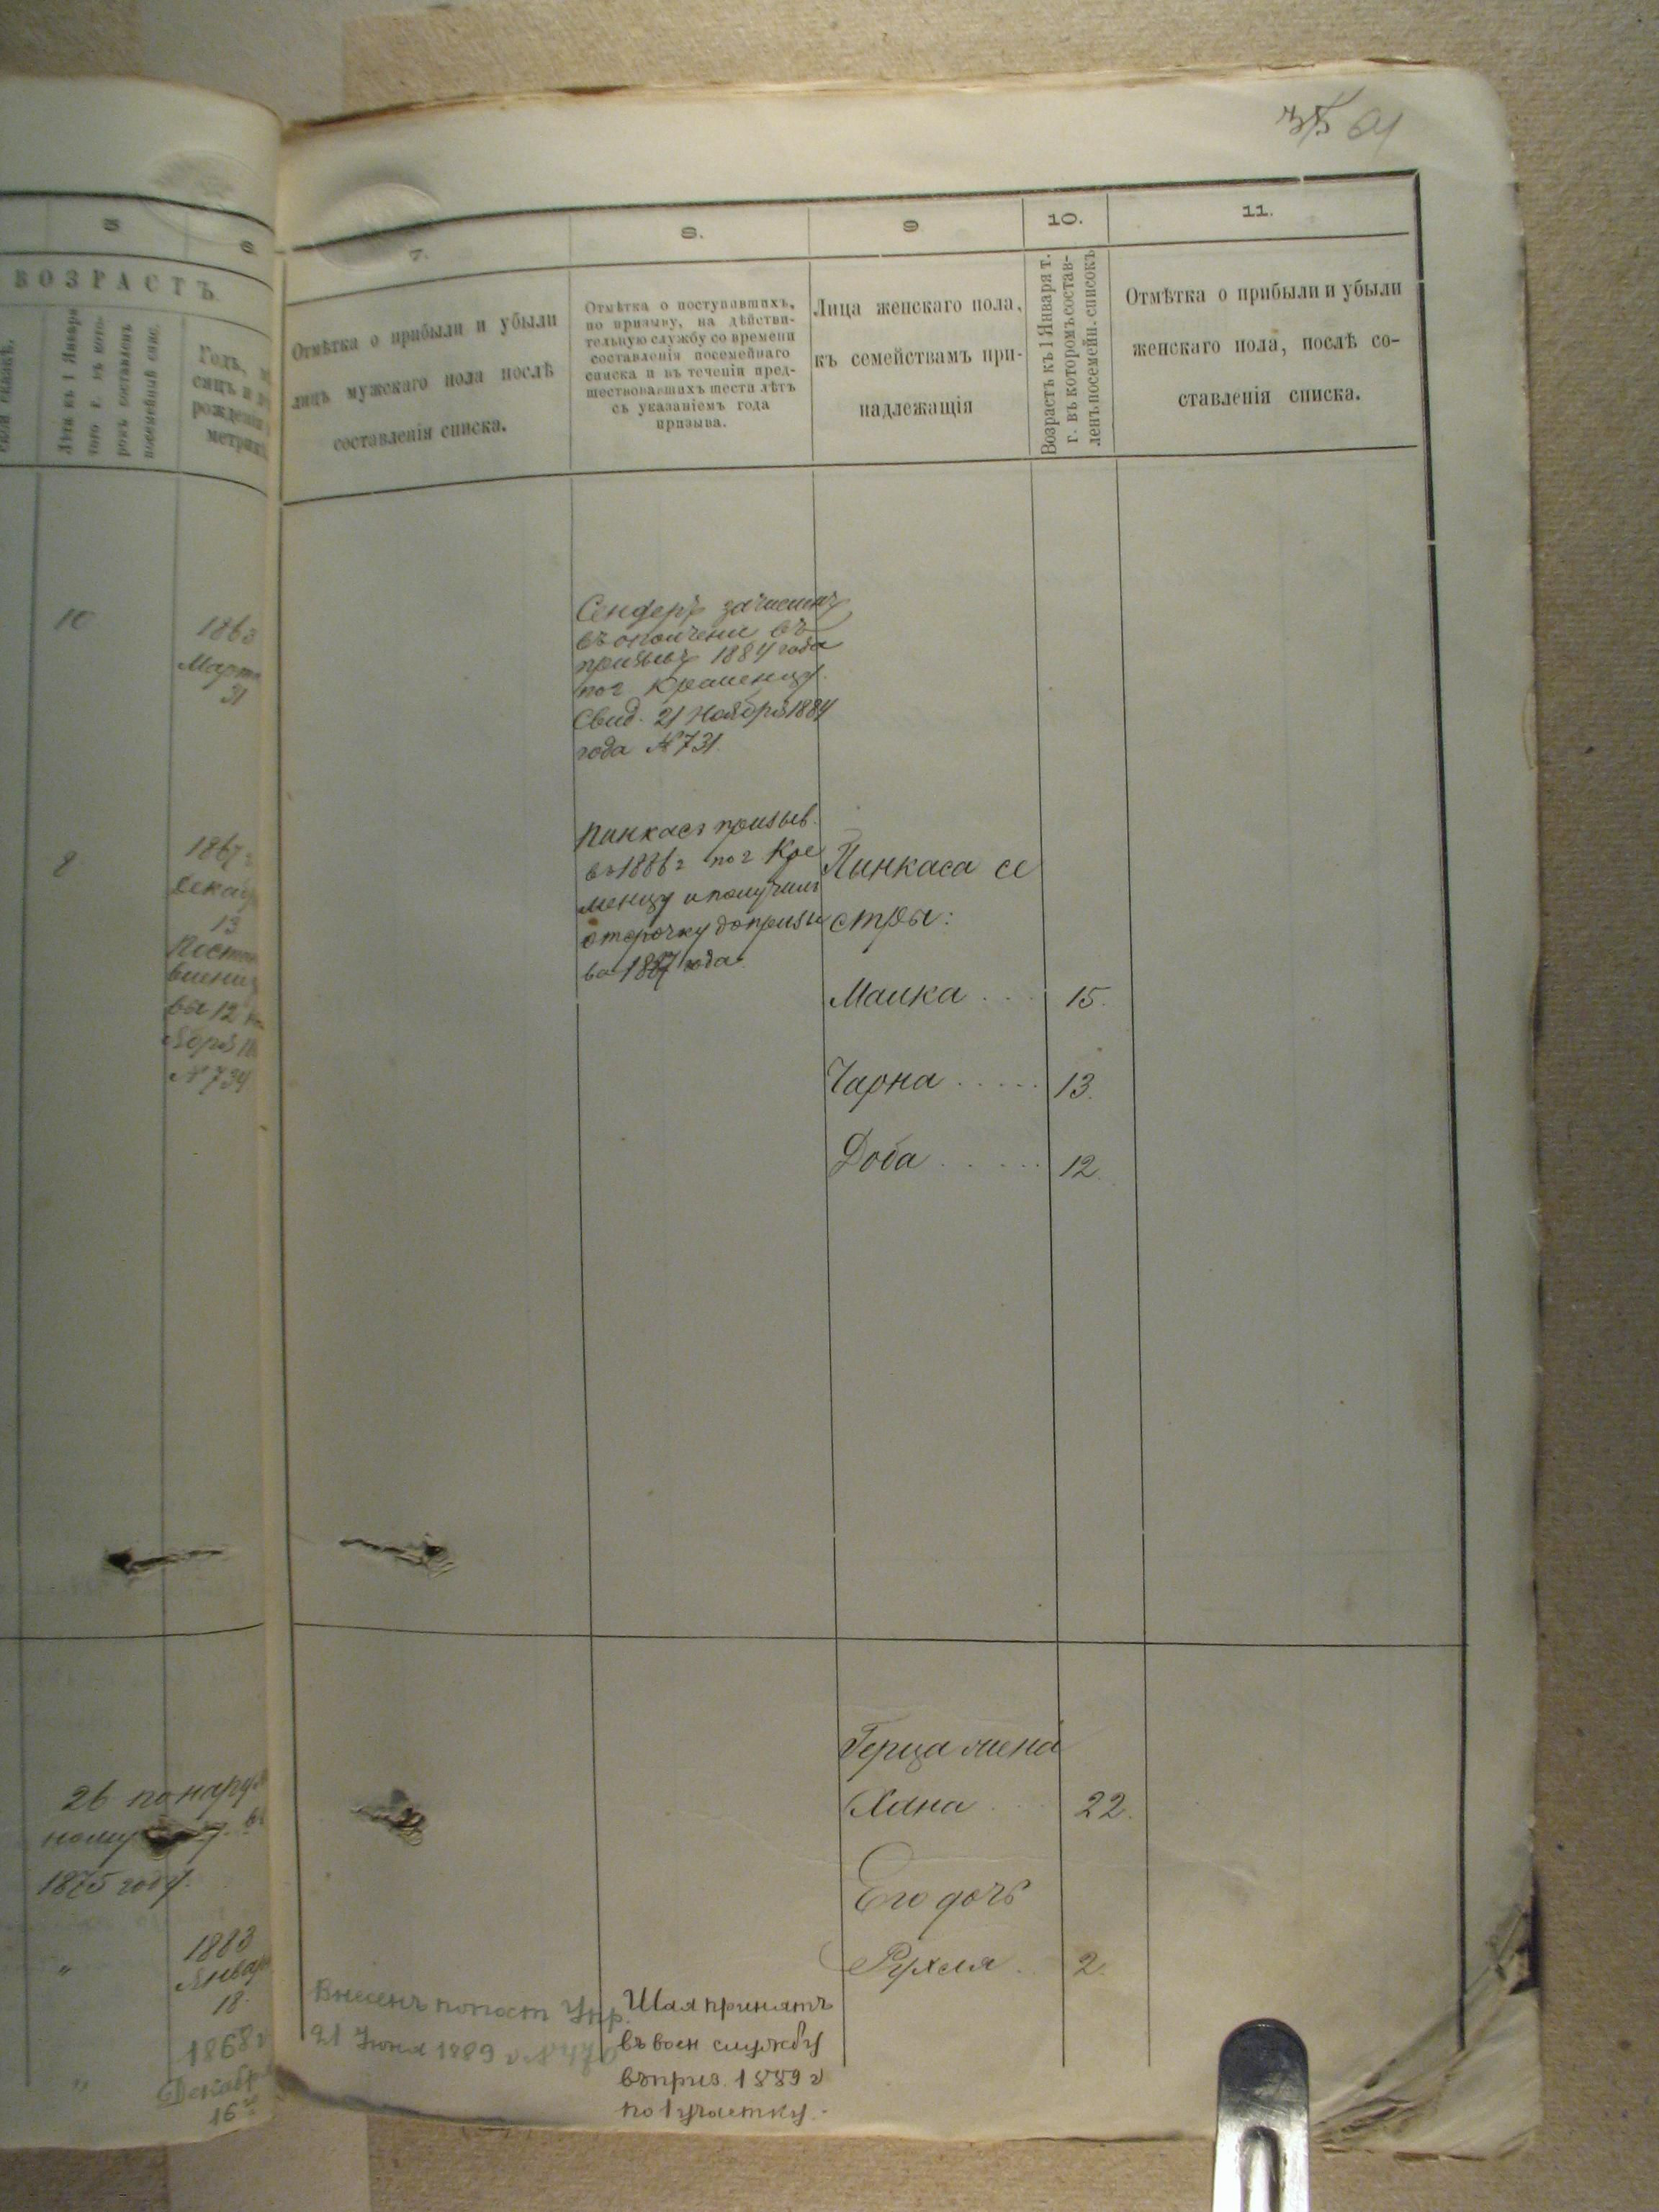 61
5
6
ВОЗРАСТЪ
Лѣта къ 1 Января
того г. въ кото-
ромъ составленъ
посемейный спис.
Годъ,
рожденія
метрик
10
1863
Марта
31
8
1867
Декаб
13
12
№ 734
26 по наруж
ному
1875 году.
"
1883
Январ
18.
"
1868 г
Декабр
16
7.
Отмѣтка о прибыли и убыли
лицъ мужскаго пола послѣ
составленія списка.
Внесенъ по пост Упр.
21 Іюня 1889 г №
8.
Отмѣтка о поступавшихъ,
по призыву, на дѣйстви-
тельную службу со времени
составленія посемейнаго
списка и въ теченіи пред-
шествовавшихъ шести лѣтъ
съ указаніемъ года
призыва.
Сендеръ зачисленъ
въ ополчение въ
призывъ 1884 года
по г Кременцу.
Свид. 21 Ноября 1884
года № 731.
Пинкасъ призыв.
въ 1886 г по г Кре
менцу и получилъ
отсрочку до призы
ва 1887 года.
Шая принятъ
въ воен службу
въ приз. 1889 г
по 1 участку.
9
Лица женскаго пола,
къ семействамъ при-
надлежащія
Пинкаса се
стры:
Малка . . .
Чарна . . . . .
Доба . . . . .
Герца жена
Хана . . .
Его дочь
Рухля .
10.
Возрастъ къ 1 Января т.
г. въ которомъ состав-
ленъ посемейн. списокъ
15.
13.
12.
22.
2.
11.
Отмѣтка о прибыли и убыли
женскаго пола, послѣ со-
ставленія списка.